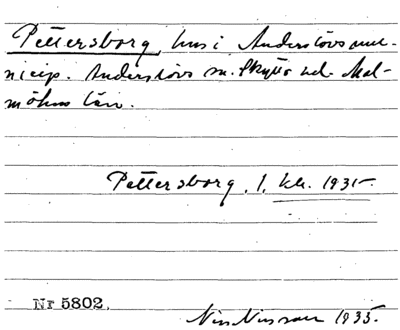 Pettersborg, hus i Anderslövs mu-
nicip. Anderslövs sn. Skytts hd. Mal-
möhus län.
Pettersborg, 1 kh. 1935.
Nr 5802.
Nils Nilsson 1935.